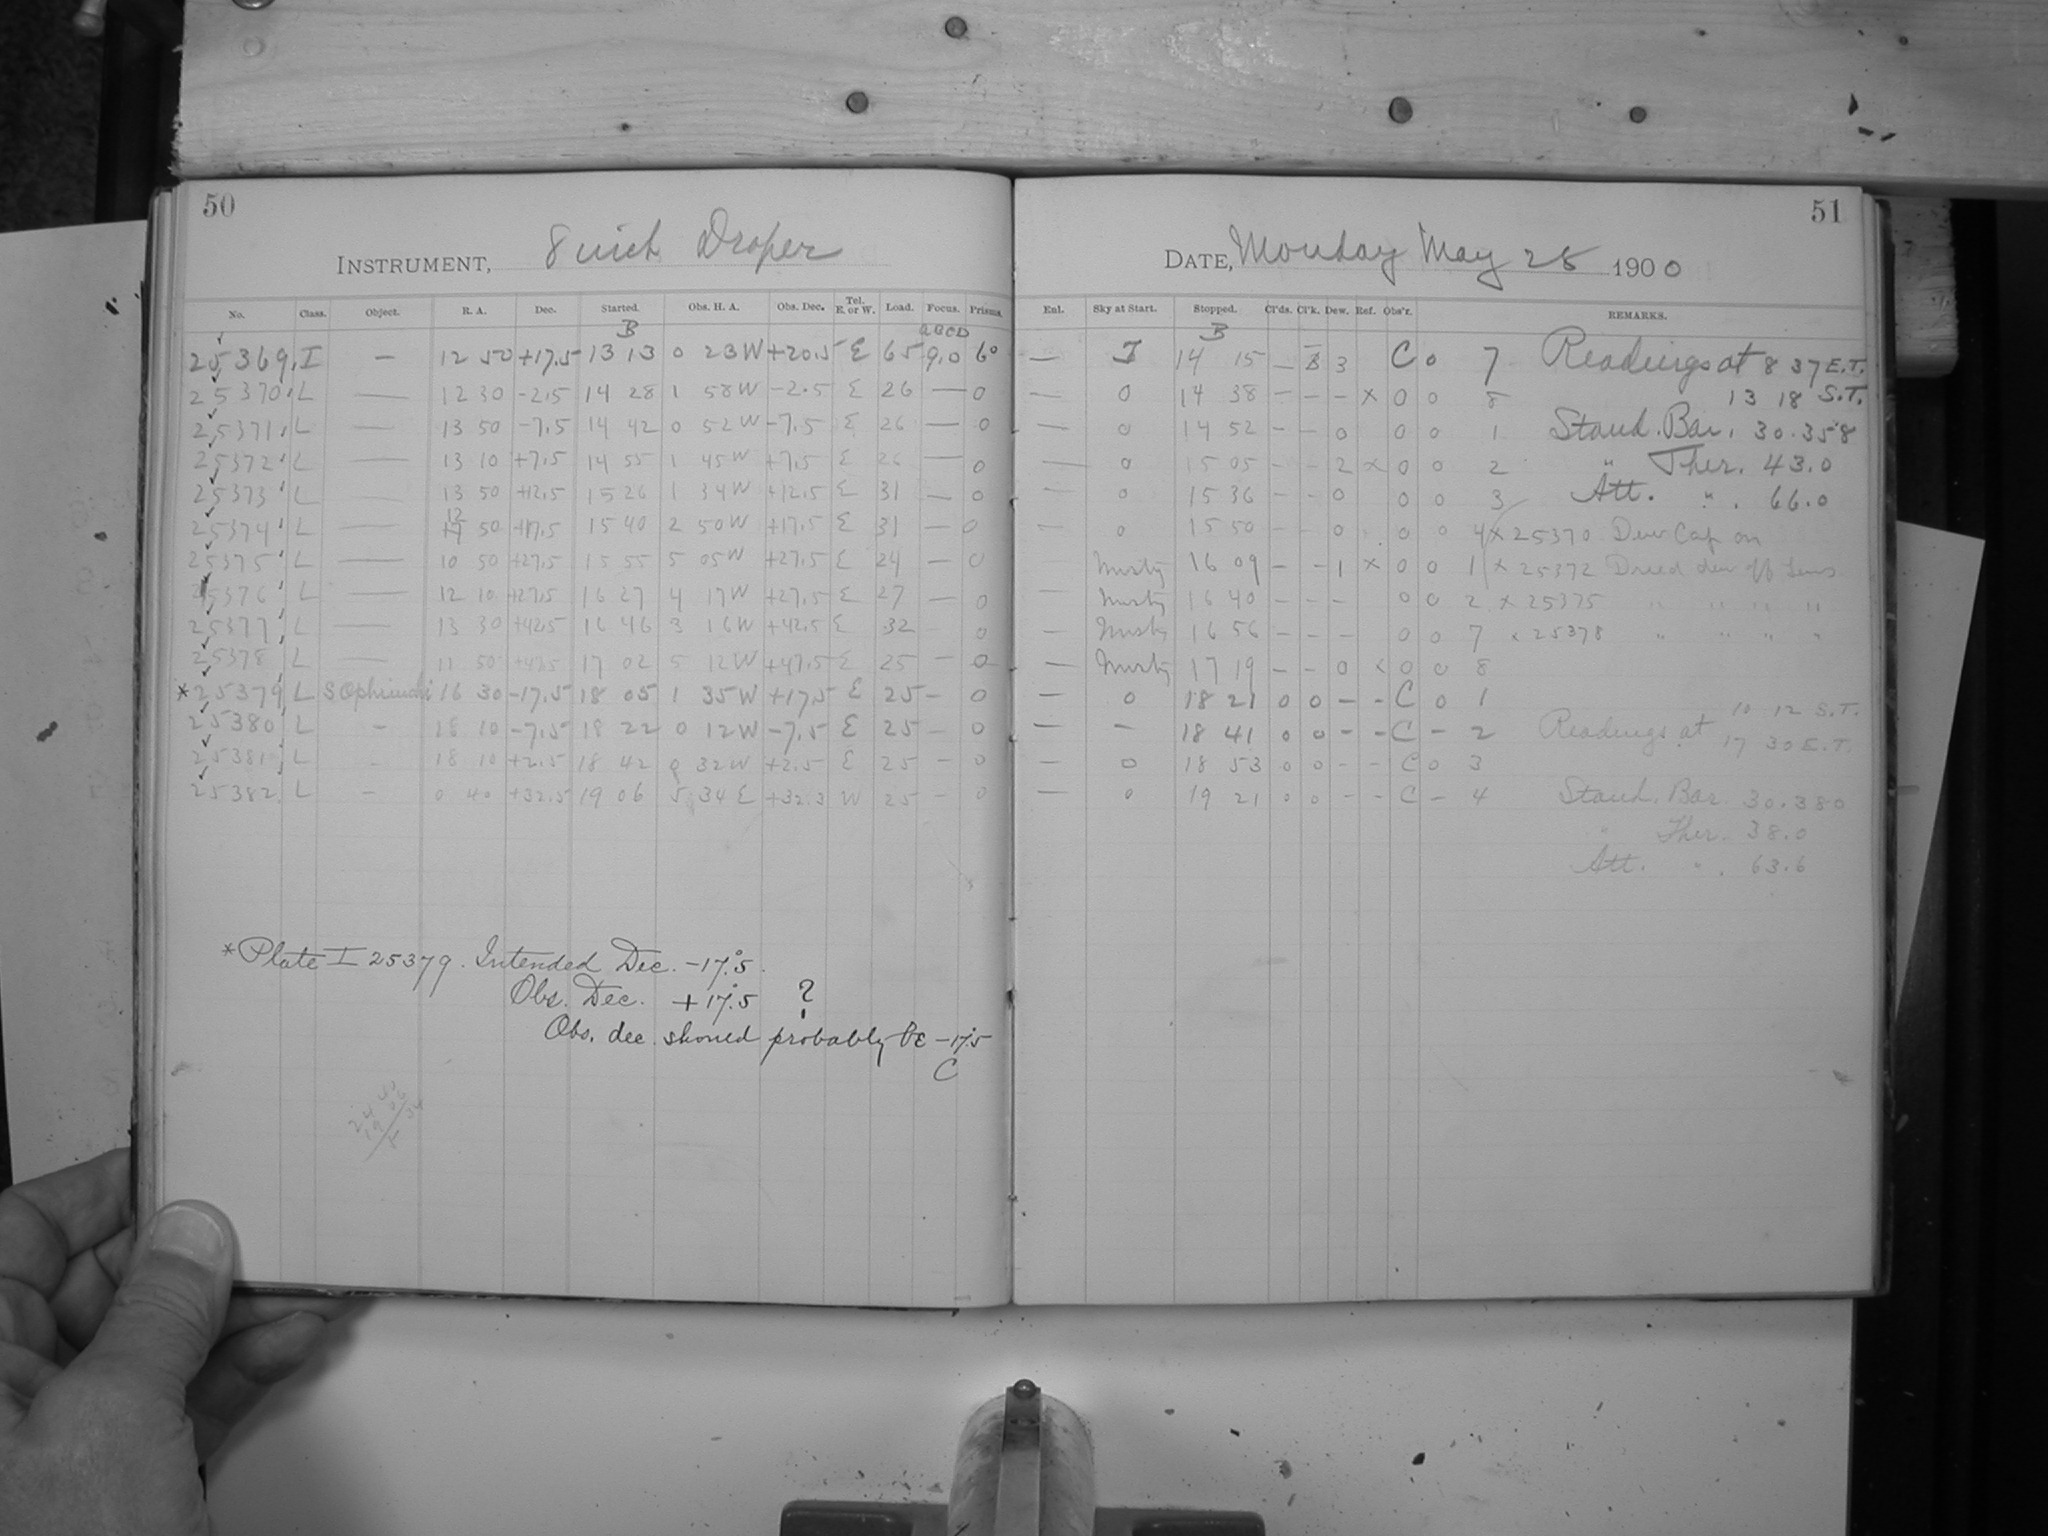 50
INSTRUMENT, 8 inch Draper
No. Class. Object. R. A. Dec. Started. Obs. H. A. Obs. Dec. Tel. E. or W. Load. Focus. Prisms.
B ABCD
25369 I — 12 50 +17.5 13 13 0 23 W +20.5 E 65 9.0 6°
25370 L — 12 30 -2.5 14 28 1 58 W -2.5 E 26 — 0
25371 L — 13 50 -7.5 14 42 0 52 W -7.5 E 26 — 0
25372 L — 13 10 +7.5 14 55 1 45 W +7.5 E 26 — 0
25373 L — 13 50 +12.5 15 26 1 34 W +12.5 E 31 — 0
25374 L — 12 50 +17.5 15 40 2 50 W +17.5 E 31 — 0
25375 L — 10 50 +27.5 15 55 5 05 W +27.5 E 24 — 0
25376 L — 12 10 +27.5 16 27 4 17 W +27.5 E 27 — 0
25377 L — 13 30 +42.5 16 46 3 16 W +42.5 E 32 0
25378 L — 11 50 +47.5 17 02 5 12 W +47.5 E 25 — 0
*25379 L S Ophiuchi 16 30 -17.5 18 05 1 35 W +17.5 E 25 — 0
25380 L - 18 10 -7.5 18 22 0 12 W -7.5 E 25 — 0
25381 L - 18 10 +2.5 18 42 0 32 W +2.5 E 25 — 0
25382 L - 0 40 +32.5 19 06 5 34 E +32.3 W 25 — 0
*Plate I 25379. Intended Dec. -17°.5.
Obs. Dec. +17°.5 ?
Obs. dec. should probably be -17°.5
C
51
DATE, Monday May 28 1900
Enl. Sky at Start. Stopped. Cl'ds. Cl'k. Dew. Ref. Obs'r. REMARKS.
B
— I 14 15 — 3 C 0 7 Readings at 8 37 E.T.
— 0 14 38 - - - x 0 0 8 13 18 S.T.
— 0 14 52 - - 0 0 0 1 Stand. Bar. 30.358
— 0 15 05 - - 2 x 0 0 2 " Ther. 43.0
— 0 15 36 - - 0 0 0 3 Att. " . 66.0
— 0 15 50 - - 0 0 0 4 x 25370 Dew Cap on
Misty 16 09 - - 1 x 0 0 1 x 25372 Dried dew off Lens
— Misty 16 40 - - - 0 0 2 x 25375 " " " "
— Misty 16 56 - - - 0 0 7 x 25378 " " " "
— Misty 17 19 - - 0 x 0 0 8
— 0 18 21 0 0 - - C 0 1
10 12 S.T.
— - 18 41 0 0 - - C - 2 Readings at 17 30 E.T.
— 0 18 53 0 0 - - C 0 3
— 0 19 21 0 0 - - C - 4 Stand. Bar. 30.380
" Ther. 38.0
Att. " . 63.6